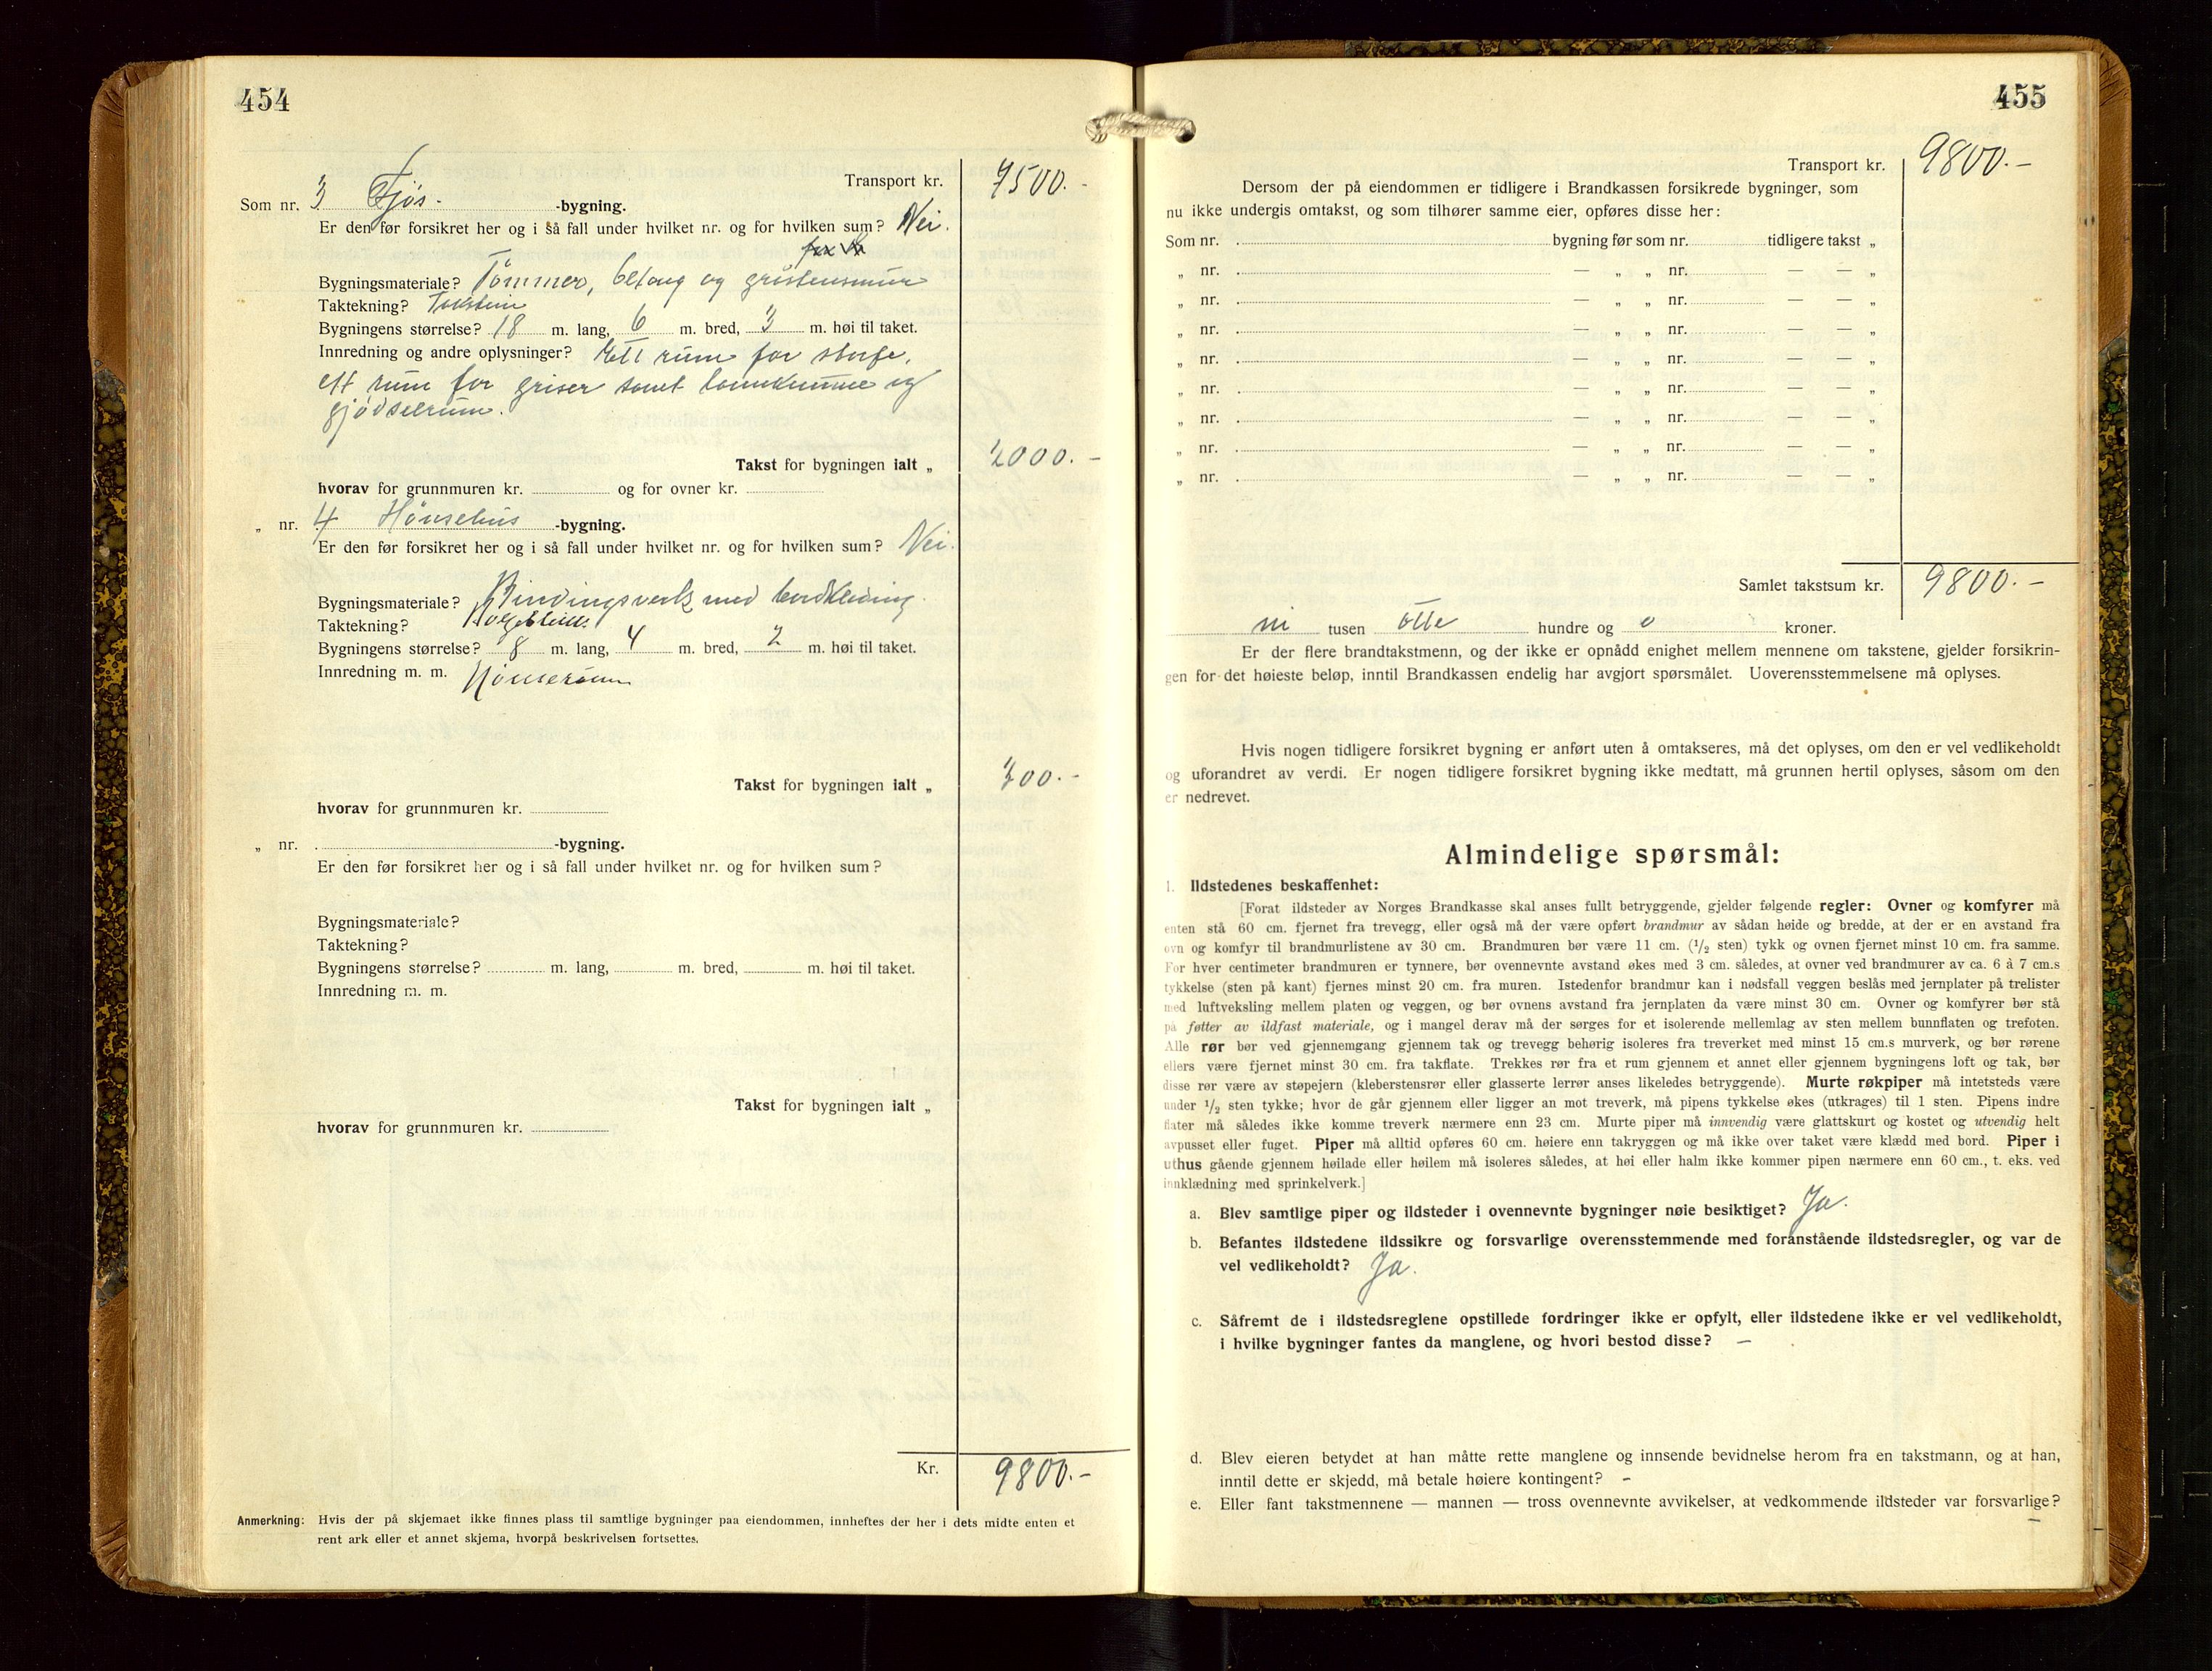 454
Transport kr. 7500.-
Som nr. 3 Fjøs. -bygning.
Er den før forsikret her og i så fall under hvilket nr. og for hvilken sum? Nei.
Bygningsmateriale? Tømmer, betong og gråstensmur
Taktekning? Takstein
Bygningens størrelse? 18 m. lang, 6 m. bred, 3 m. høi til taket.
Innredning og andre oplysninger? Ett rum for storfe,
ett rum for griser samt landkumme og
gjødselrum.
Takst for bygningen ialt „ 2000.-
hvorav for grunnmuren kr. og for ovner kr.
„ nr. 4 Hønsehus -bygning.
Er den før forsikret her og i så fall under hvilket nr. og for hvilken sum? Nei.
Bygningsmateriale? Bindingsverk med bordkledning.
Taktekning?
Bygningens størrelse? 8 m. lang, 4 m. bred, 2 m. høi til taket.
Innredning m. m. Hønserum
Takst for bygningen ialt „ 300.-
hvorav for grunnmuren kr.
„ nr. -bygning.
Er den før forsikret her og i så fall under hvilket nr. og for hvilken sum?
Bygningsmateriale?
Taktekning?
Bygningens størrelse? m. lang, m. bred, m. høi til taket.
Innredning m. m.
Takst for bygningen ialt „
hvorav for grunnmuren kr.
Kr. 9800.-
Anmerkning: Hvis der på skjemaet ikke finnes plass til samtlige bygninger paa eiendommen, innheftes der her i dets midte enten et
rent ark eller et annet skjema, hvorpå beskrivelsen fortsettes.
455
Transport kr. 9800.-
Dersom der på eiendommen er tidligere i Brandkassen forsikrede bygninger, som
nu ikke undergis omtakst, og som tilhører samme eier, opføres disse her:
Som nr. bygning før som nr. tidligere takst „
„ nr. — „ „ nr. — — „
„ nr. — „ „ nr. — — „
„ nr. — „ „ nr. — — „
„ nr. — „ „ nr. — — „
„ nr. — „ „ nr. — — „
„ nr. — „ „ nr. — — „
„ nr. — „ „ nr. — — „
„ nr. — „ „ nr. — — „
Samlet takstsum kr. 9800.-
ni tusen otte hundre og o kroner.
Er der flere brandtakstmenn, og der ikke er opnådd enighet mellem mennene om takstene, gjelder forsikrin-
gen for det høieste beløp, inntil Brandkassen endelig har avgjort spørsmålet. Uoverensstemmelsene må oplyses.
Hvis nogen tidligere forsikret bygning er anført uten å omtakseres, må det oplyses, om den er vel vedlikeholdt
og uforandret av verdi. Er nogen tidligere forsikret bygning ikke medtatt, må grunnen hertil oplyses, såsom om den
er nedrevet.
Almindelige spørsmål:
1. Ildstedenes beskaffenhet:
[Forat ildsteder av Norges Brandkasse skal anses fullt betryggende, gjelder følgende regler: Ovner og komfyrer må
enten stå 60 cm. fjernet fra trevegg, eller også må der være opført brandmur av sådan høide og bredde, at der er en avstand fra
ovn og komfyr til brandmurlistene av 30 cm. Brandmuren bør være 11 cm. (1/2 sten) tykk og ovnen fjernet minst 10 cm. fra samme.
For hver centimeter brandmuren er tynnere, bør ovennevnte avstand økes med 3 cm. således, at ovner ved brandmurer av ca. 6 à 7 cm.s
tykkelse (sten på kant) fjernes minst 20 cm. fra muren. Istedenfor brandmur kan i nødsfall veggen beslås med jernplater på trelister
med luftveksling mellem platen og veggen, og bør ovnens avstand fra jernplaten da være minst 30 cm. Ovner og komfyrer bør stå
på føtter av ildfast materiale, og i mangel derav må der sørges for et isolerende mellemlag av sten mellem bunnflaten og trefoten.
Alle rør bør ved gjennemgang gjennem tak og trevegg behørig isoleres fra treverket med minst 15 cm.s murverk, og bør rørene
ellers være fjernet minst 30 cm. fra takflate. Trekkes rør fra et rum gjennem et annet eller gjennem bygningens loft og tak, bør
disse rør være av støpejern (kleberstensrør eller glasserte lerrør anses likeledes betryggende). Murte røkpiper må intetsteds være
under 1/2 sten tykke; hvor de går gjennem eller ligger an mot treverk, må pipens tykkelse økes (utkrages) til 1 sten. Pipens indre
flater må således ikke komme treverk nærmere enn 23 cm. Murte piper må innvendig være glattskurt og kostet og utvendig helt
avpusset eller fuget. Piper må alltid opføres 60 cm. høiere enn takryggen og må ikke over taket være klædd med bord. Piper i
uthus gående gjennem høilade eller høilem må isoleres således, at høi eller halm ikke kommer pipen nærmere enn 60 cm., t. eks. ved
innklædning med sprinkelverk.]
a. Blev samtlige piper og ildsteder i ovennevnte bygninger nøie besiktiget? Ja.
b. Befantes ildstedene ildssikre og forsvarlige overensstemmende med foranstående ildstedsregler, og var de
vel vedlikeholdt? Ja.
c. Såfremt de i ildstedsreglene opstillede fordringer ikke er opfylt, eller ildstedene ikke er vel vedlikeholdt,
i hvilke bygninger fantes da manglene, og hvori bestod disse? —
d. Blev eieren betydet at han måtte rette manglene og innsende bevidnelse herom fra en takstmann, og at han,
inntil dette er skjedd, må betale høiere kontingent? -
e. Eller fant takstmennene — mannen — tross ovennevnte avvikelser, at vedkommende ildsteder var forsvarlige?
—